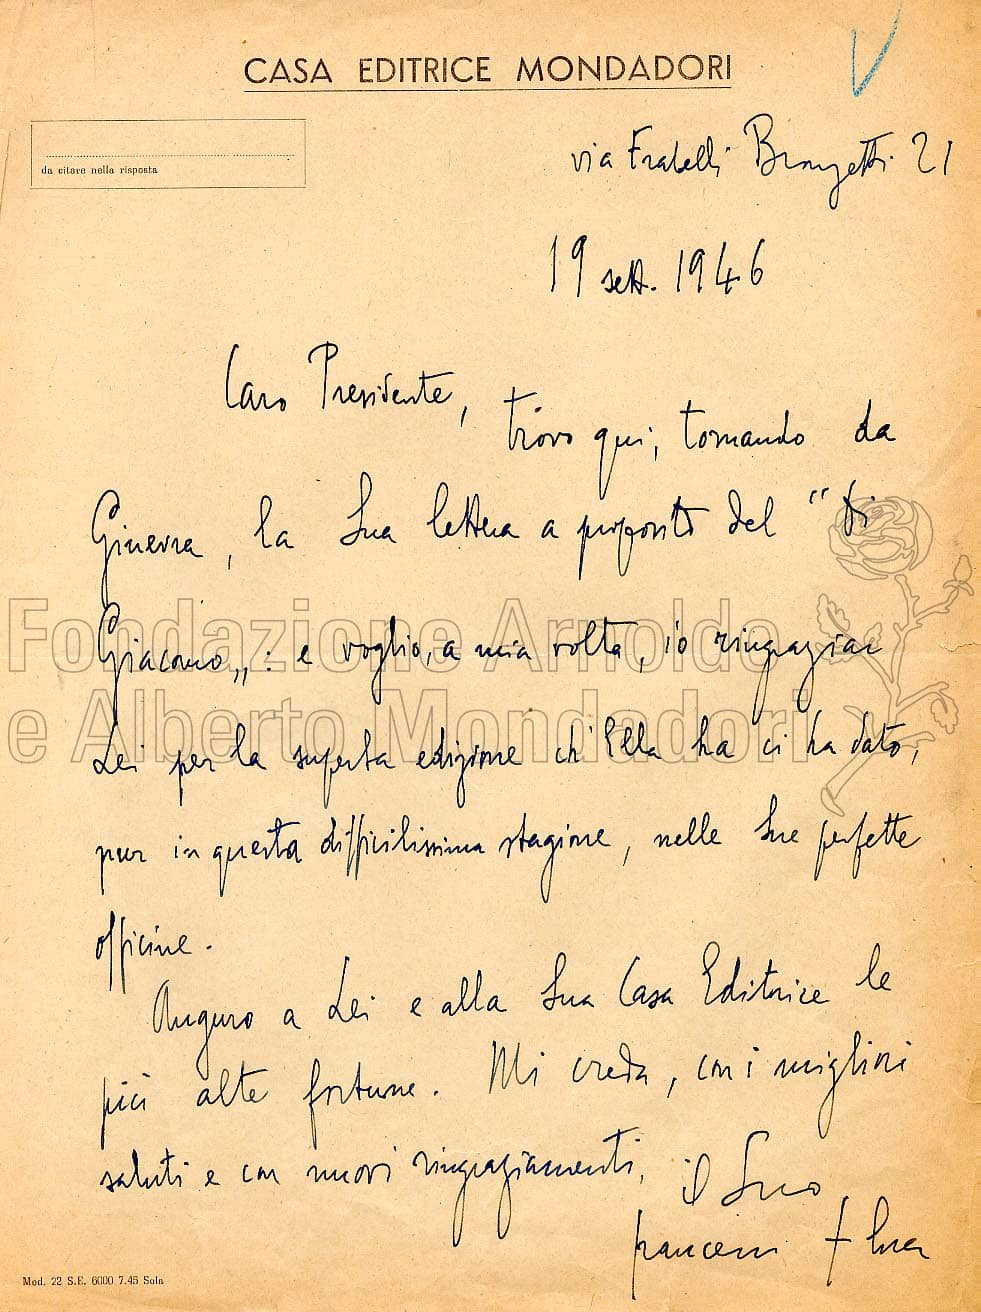 CASA EDITRICE MONDADORI
da citare nella risposta
via Fratelli Bronzetti 21
19 sett. 1946
Caro Presidente,
trovo qui, tornando da
Ginevra, la Sua lettera a proposito del "Di
Giacomo„: e voglio, a mia volta, io ringraziar
Lei per la superba edizione ch'Ella ha ci ha dato,
pur in questa difficilissima stagione, nelle Sue perfette
officine.
Auguro a Lei e alla Sua Casa Editrice le
più alte fortune. Mi creda, con i migliori
saluti e con nuovi ringraziamenti,
il Suo
francesco flora
Mod. 22 S.E. 6000 7.45 Sola
Fondazione Arnoldo
e Alberto Mondadori